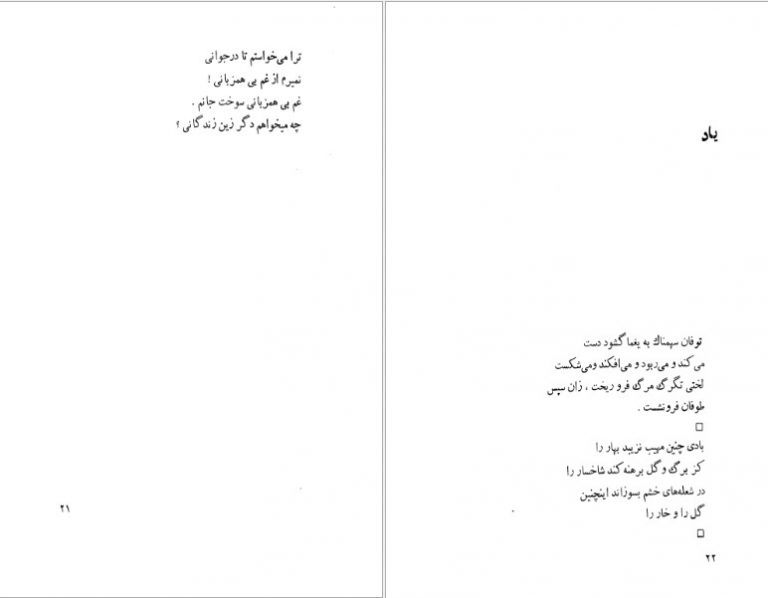 ترا می‌خواستم تا درجوانی
نمیرم از غم بی همزبانی !
غم بی همزبانی سوخت جانم .
چه میخواهم دگر زین زندگانی ؟
۲۱
یاد
توفان سهمناك به یغما گشود دست
می‌کند و می‌ربود و می‌افکند ومی‌شکست
لختی تگرگ مرگ فرو ریخت ، زان سپس
طوفان فرونشست .
بادی چنین مهیب نزیبد بهار را
کز برگ و گل برهنه کند شاخسار را
در شعله‌های خشم بسوزاند اینچنین
گل را و خار را
۲۲